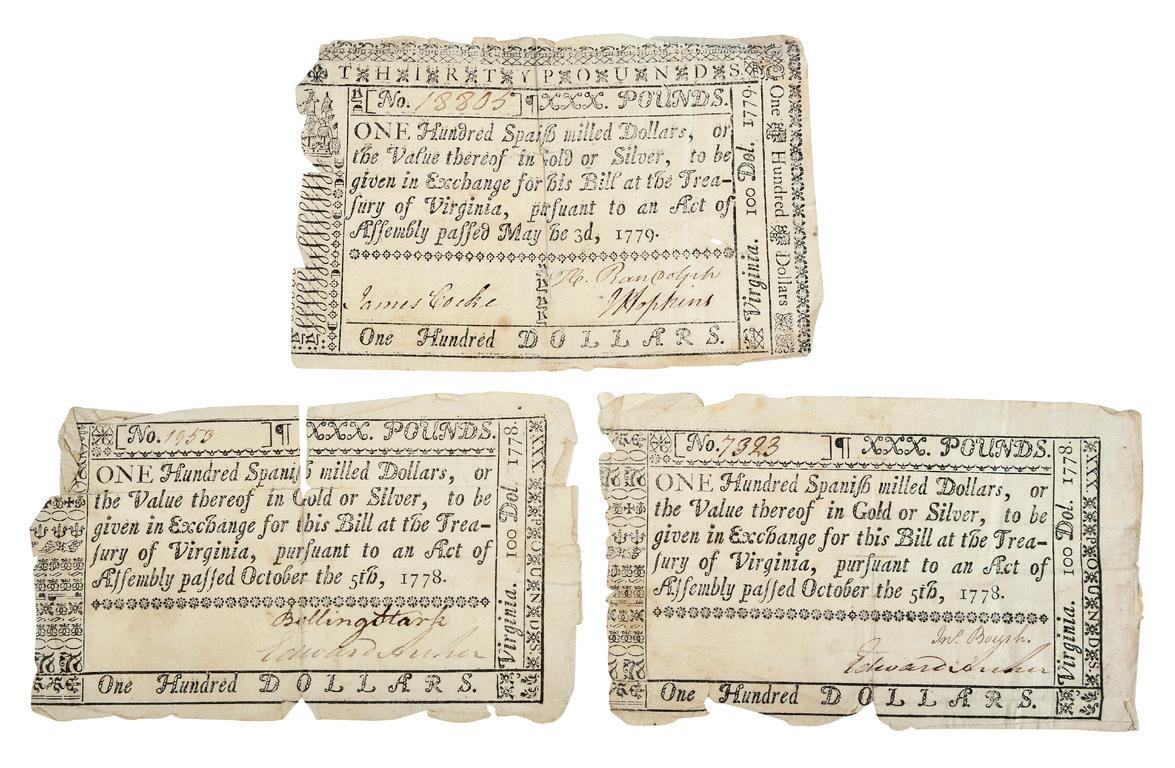 THIRTY POUNDS.
[No. 18805] ¶ XXX. POUNDS.
ONE Hundred Spaniſh milled Dollars, or
the Value thereof in Gold or Silver, to be
given in Exchange for his Bill at the Trea-
ſury of Virginia, purſuant to an Act of
Aſſembly paſſed May he 3d, 1779.
James Cocke
R. Randolph
J Hopkins
One Hundred DOLLARS.
Virginia. 100 Dol. 1779.
One Hundred Dollars
[No. 1953 ] ¶ XXX. POUNDS.
ONE Hundred Spaniſh milled Dollars, or
the Value thereof in Gold or Silver, to be
given in Exchange for this Bill at the Trea-
ſury of Virginia, purſuant to an Act of
Aſſembly paſſed October the 5th, 1778.
Bolling Stark
Edward Archer
One Hundred DOLLARS.
Virginia. 100 Dol. 1778.
XXX POUNDS
[No. 7323 ] ¶ XXX. POUNDS.
ONE Hundred Spaniſh milled Dollars, or
the Value thereof in Gold or Silver, to be
given in Exchange for this Bill at the Trea-
ſury of Virginia, purſuant to an Act of
Aſſembly paſſed October the 5th, 1778.
Jno. Boush.
Edward Archer
One Hundred DOLLARS.
Virginia. 100 Dol. 1778.
XXX POUNDS